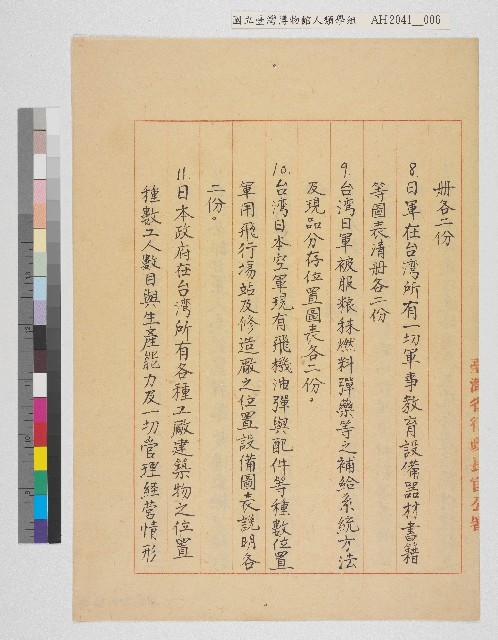 國立臺灣博物館人類學組 AH2041__006
册各二份
8.日軍在台湾所有一切軍事教育設備器材書籍
等圖表清册各二份
9.台湾日軍被服粮秣燃料彈藥等之補給系統方法
及現品分存位置圖表各二份。
10.台湾日本空軍現有飛機油彈與配件等種數位置
軍用飛行場站及修造廠之位置設備圖表說明各
二份。
11.日本政府在台湾所有各種工廠建築物之位置
種數工人數目與生產能力及一切管理經營情形
臺灣省行政長官公署